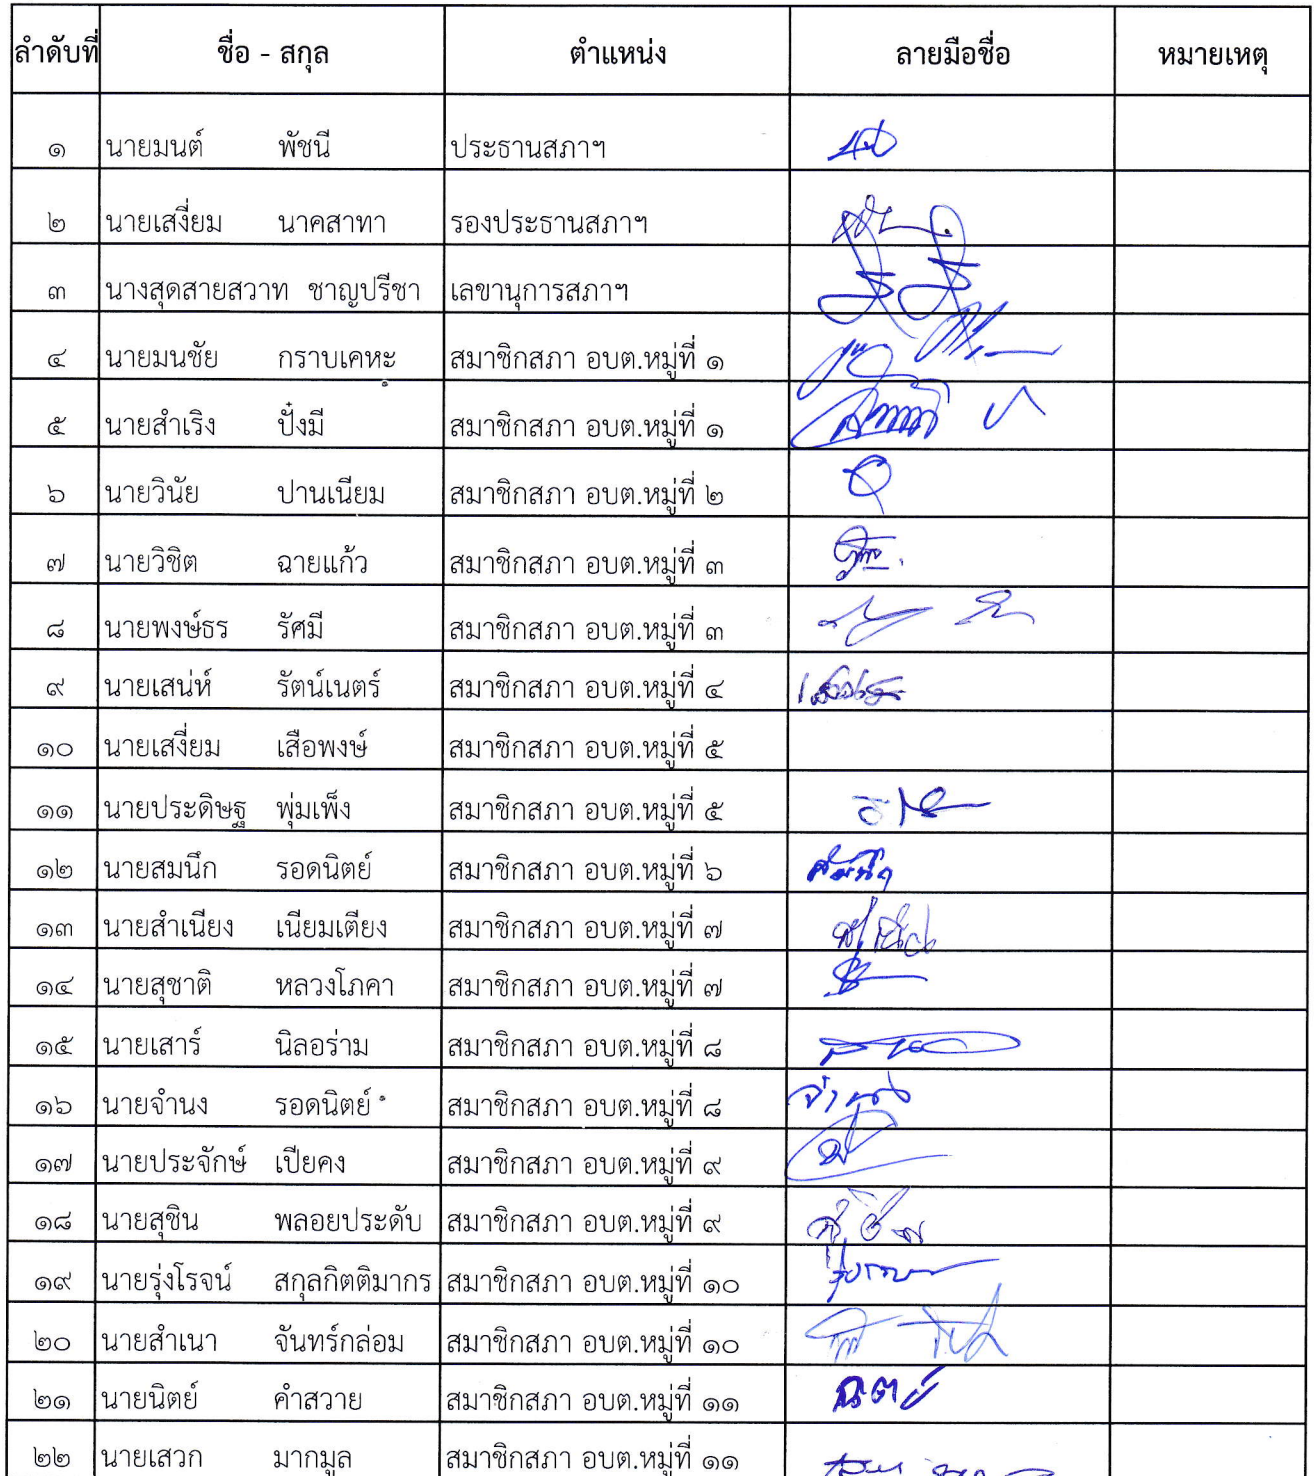 ลำดับที่ ชื่อ - สกุล ตำแหน่ง ลายมือชื่อ หมายเหตุ
๑ นายมนต์ พัชนี ประธานสภาฯ
๒ นายเสงี่ยม นาคสาทา รองประธานสภาฯ
๓ นางสุดสายสวาท ชาญปรีชา เลขานุการสภาฯ
๔ นายมนชัย กราบเคหะ สมาชิกสภา อบต.หมู่ที่ ๑
๕ นายสำเริง ปั๋งมี สมาชิกสภา อบต.หมู่ที่ ๑
๖ นายวินัย ปานเนียม สมาชิกสภา อบต.หมู่ที่ ๒
๗ นายวิชิต ฉายแก้ว สมาชิกสภา อบต.หมู่ที่ ๓
๘ นายพงษ์ธร รัศมี สมาชิกสภา อบต.หมู่ที่ ๓
๙ นายเสน่ห์ รัตน์เนตร์ สมาชิกสภา อบต.หมู่ที่ ๔
๑๐ นายเสงี่ยม เสือพงษ์ สมาชิกสภา อบต.หมู่ที่ ๕
๑๑ นายประดิษฐ พุ่มเพ็ง สมาชิกสภา อบต.หมู่ที่ ๕
๑๒ นายสมนึก รอดนิตย์ สมาชิกสภา อบต.หมู่ที่ ๖ สมนึก
๑๓ นายสำเนียง เนียมเตียง สมาชิกสภา อบต.หมู่ที่ ๗
๑๔ นายสุชาติ หลวงโภคา สมาชิกสภา อบต.หมู่ที่ ๗
๑๕ นายเสาร์ นิลอร่าม สมาชิกสภา อบต.หมู่ที่ ๘
๑๖ นายจำนง รอดนิตย์ สมาชิกสภา อบต.หมู่ที่ ๘ จำนง
๑๗ นายประจักษ์ เปียคง สมาชิกสภา อบต.หมู่ที่ ๙
๑๘ นายสุชิน พลอยประดับ สมาชิกสภา อบต.หมู่ที่ ๙
๑๙ นายรุ่งโรจน์ สกุลกิตติมากร สมาชิกสภา อบต.หมู่ที่ ๑๐
๒๐ นายสำเนา จันทร์กล่อม สมาชิกสภา อบต.หมู่ที่ ๑๐
๒๑ นายนิตย์ คำสวาย สมาชิกสภา อบต.หมู่ที่ ๑๑ นิตย์
๒๒ นายเสวก มากมูล สมาชิกสภา อบต.หมู่ที่ ๑๑